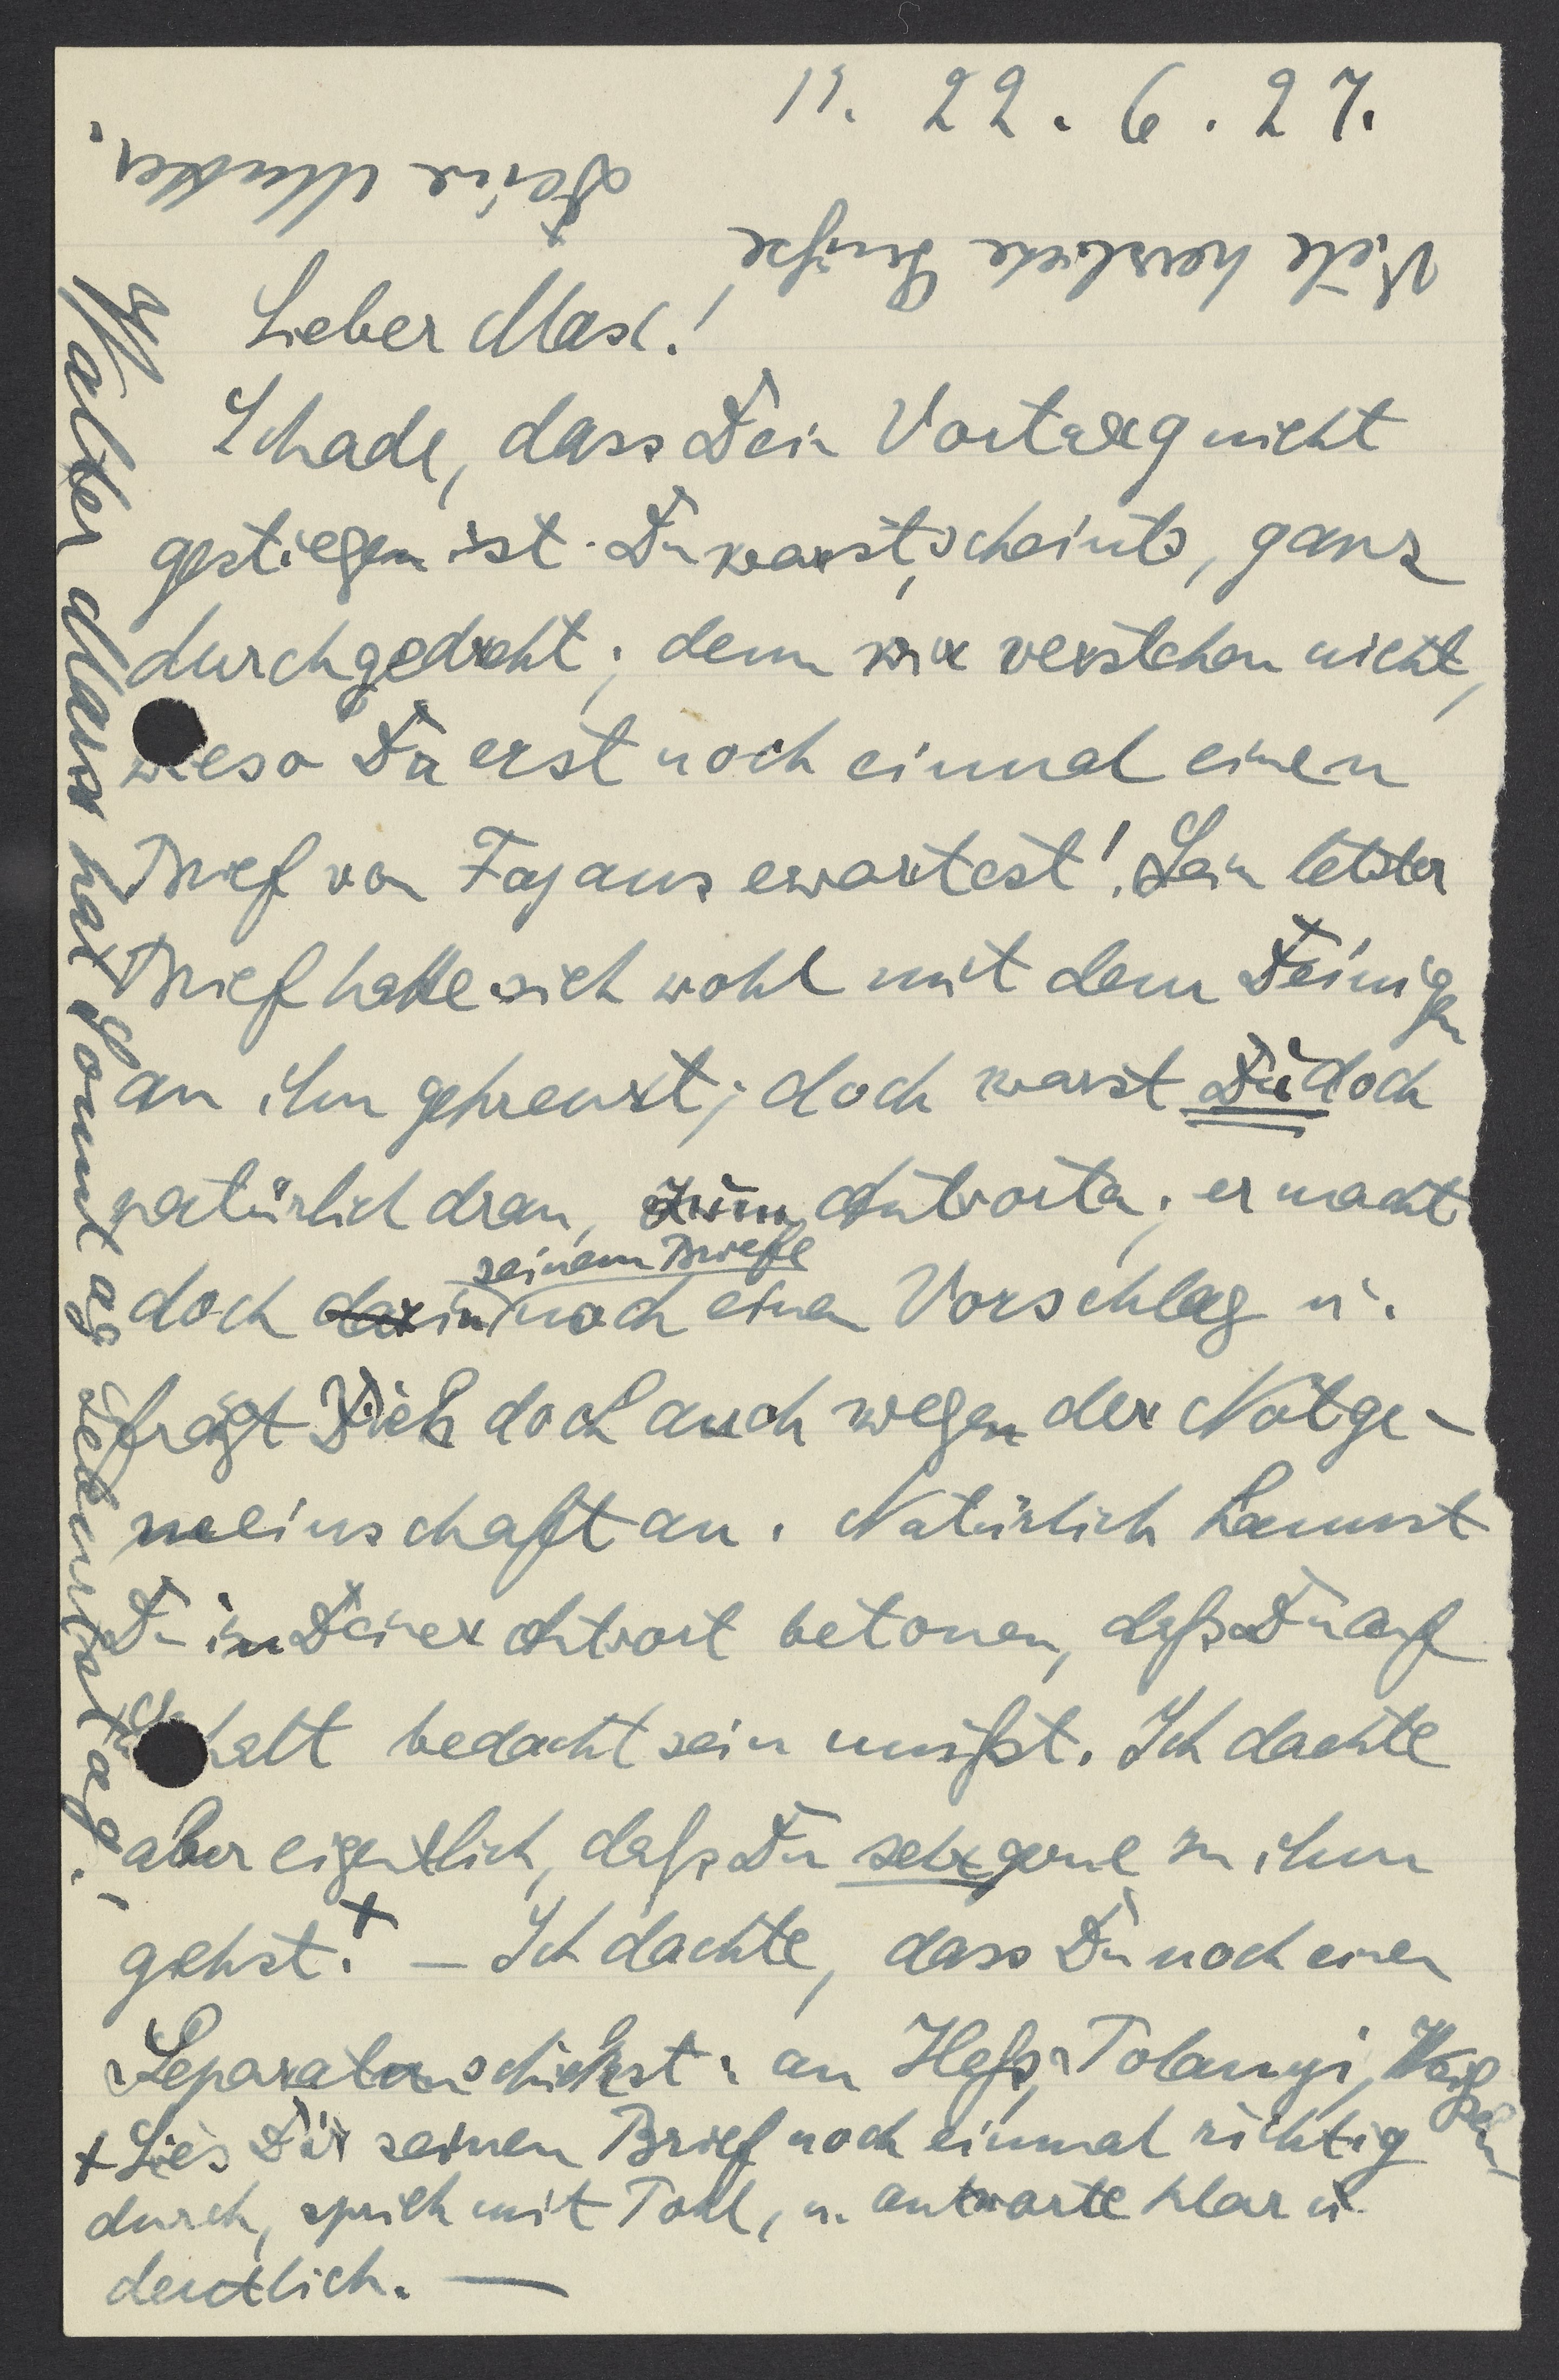 M. 22. 6. 27.
Lieber Max!
Schade, dass Dein Vortrag nicht
gestiegen ist. Du warst, scheints, ganz
durchgedreht; denn wir verstehen nicht,
wieso Du erst noch einmal einen
Brief von Fajans erwartest! Sein letzter
Brief hatte sich wohl mit dem Deinigen
an ihn gekreuzt; doch warst Du doch
natürlich dran, zum Antworten; er macht
doch darin seinem Briefe noch einen Vorschlag u.
frägt Dich doch auch wegen der Notge-
meinschaft an. Natürlich kannst
Du in Deiner Antwort betonen, daß Du auf
Gehalt bedacht sein mußt. Ich dachte
aber eigentlich, daß Du sehr gerne zu ihm
gehst! + – Ich dachte, dass Du noch einen
Separaten schickst: an Heß, Polanyi,
+ Lies Dir seinen Brief noch einmal richtig
durch, sprich mit Pohl, u. antworte klar u.
deutlich. —
Walter Marx hat Sonntag Geburtstag!
Viele herzliche Grüße!
Deine Mutter.